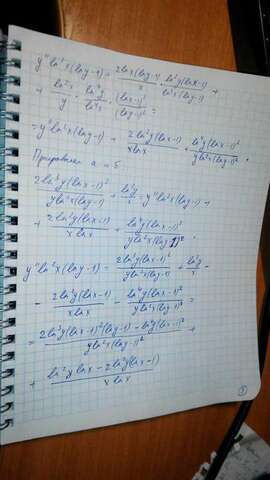 y'' ln²x(lny-1) + 2lnx(lny-1)/x · ln²y(lnx-1)/ln²x(lny-1) +
+ ln²x/y · ln⁴y/ln⁴x · (lnx-1)²/(lny-1)² =
= y'' ln²x(lny-1) + 2ln²y(lnx-1)/xlnx + ln⁴y(lnx-1)²/yln²x(lny-1)².
Приравняем а = б.
2ln³y(lnx-1)²/yln²x(lny-1) + ln²y/x = y'' ln²x(lny-1) +
+ 2ln²y(lnx-1)/xlnx + ln⁴y(lnx-1)²/yln²x(lny-1)².
y'' ln²x(lny-1) = 2ln³y(lnx-1)²/yln²x(lny-1) + ln²y/x -
- 2ln²y(lnx-1)/xlnx - ln⁴y(lnx-1)²/yln²x(lny-1)² =
= 2ln³y(lnx-1)²(lny-1) - ln⁴y(lnx-1)²/yln²x(lny-1)² +
+ ln²y lnx - 2ln²y(lnx-1)/xlnx